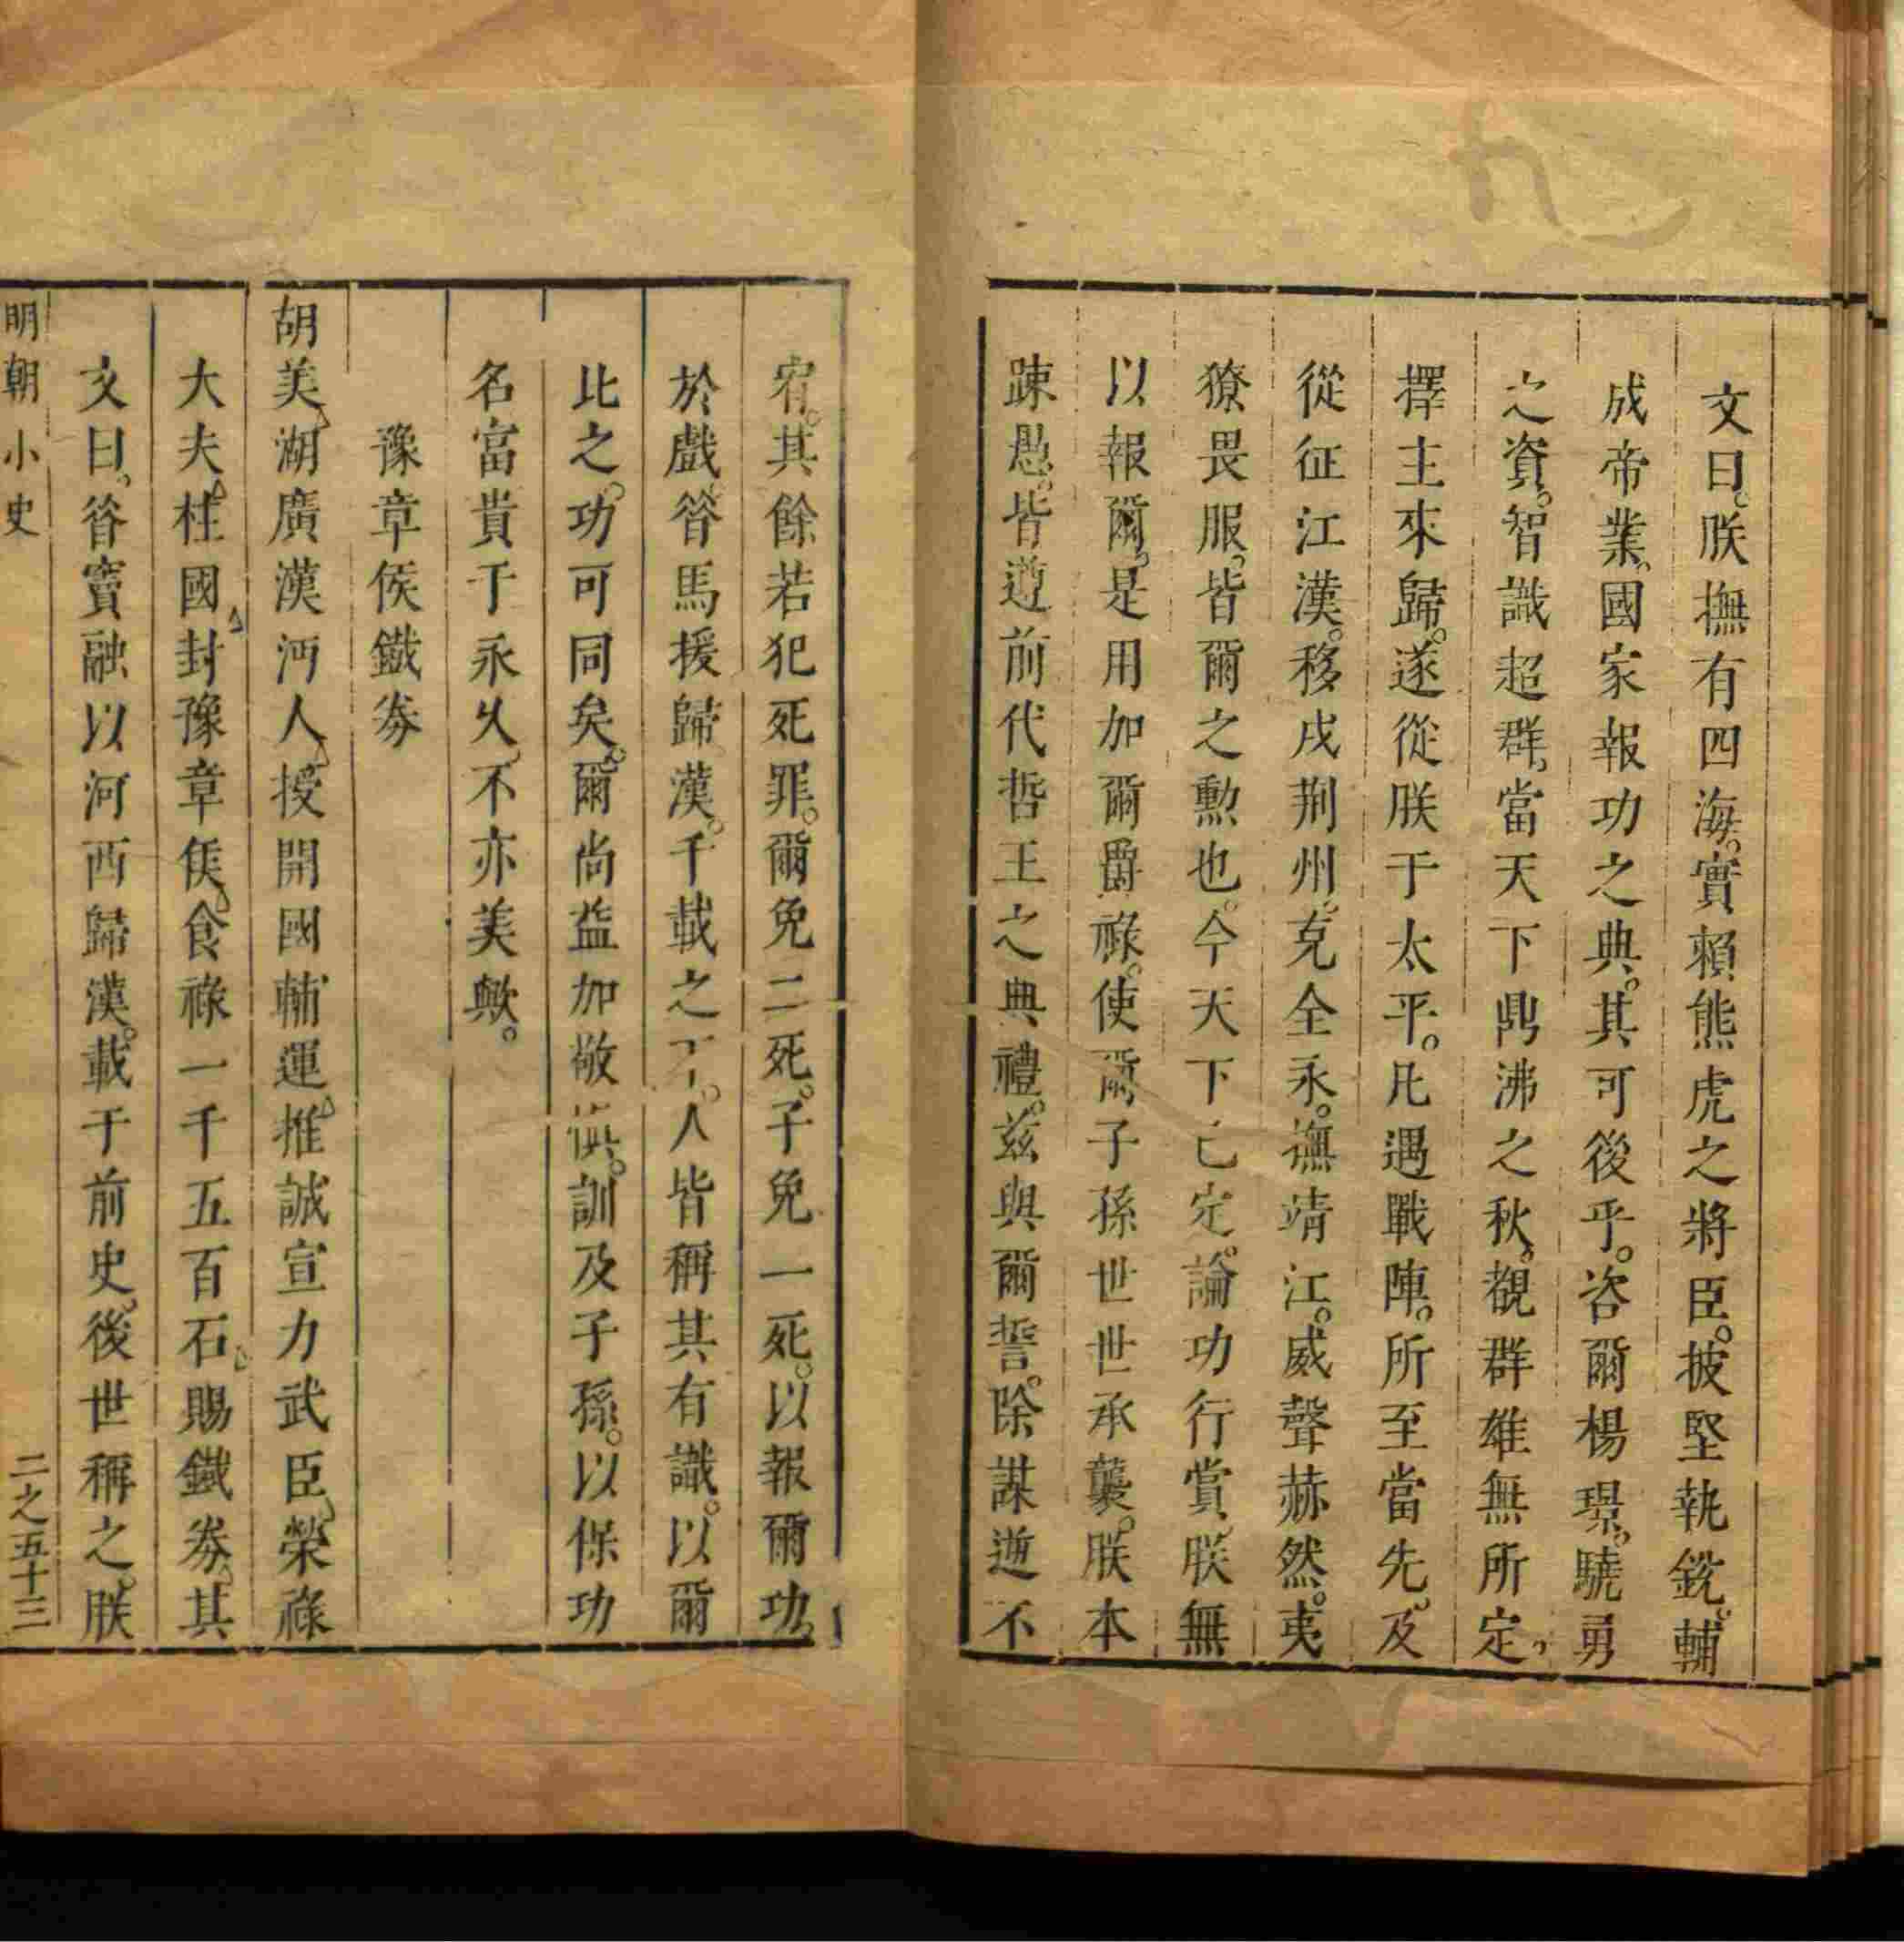 文曰。朕撫有四海。實賴熊虎之將臣。披堅執銳。輔
成帝業。國家報功之典。其可後乎。咨爾楊璟。驍勇
之資。智識超群。當天下鼎沸之秋。覩群雄無所定。
擇主來歸。遂從朕于太平。凡遇戰陣。所至當先。及
從征江漢。移戍荆州。克全永。撫靖江。威聲赫然。夷
獠畏服。皆爾之勲也。今天下已定。論功行賞。朕無
以報爾。是用加爾爵祿。使爾子孫世世承襲。朕本
踈愚。皆遵前代哲王之典禮。兹與爾誓。除謀逆不
宥。其餘若犯死罪。爾免二死。子免一死。以報爾功。
於戲。昝馬援歸漢。千載之下。人皆稱其有識。以爾
比之。功可同矣。爾尚益加敬慎。訓及子孫。以保功
名富貴于永久。不亦美歟。
豫章侯鐵劵
胡美湖廣漢沔人授開國輔運推誠宣力武臣榮祿
大夫柱國封豫章侯食祿一千五百石賜鐵劵其
文曰。昝竇融以河西歸漢。載于前史。後世稱之。朕
明朝小史
二之五十三